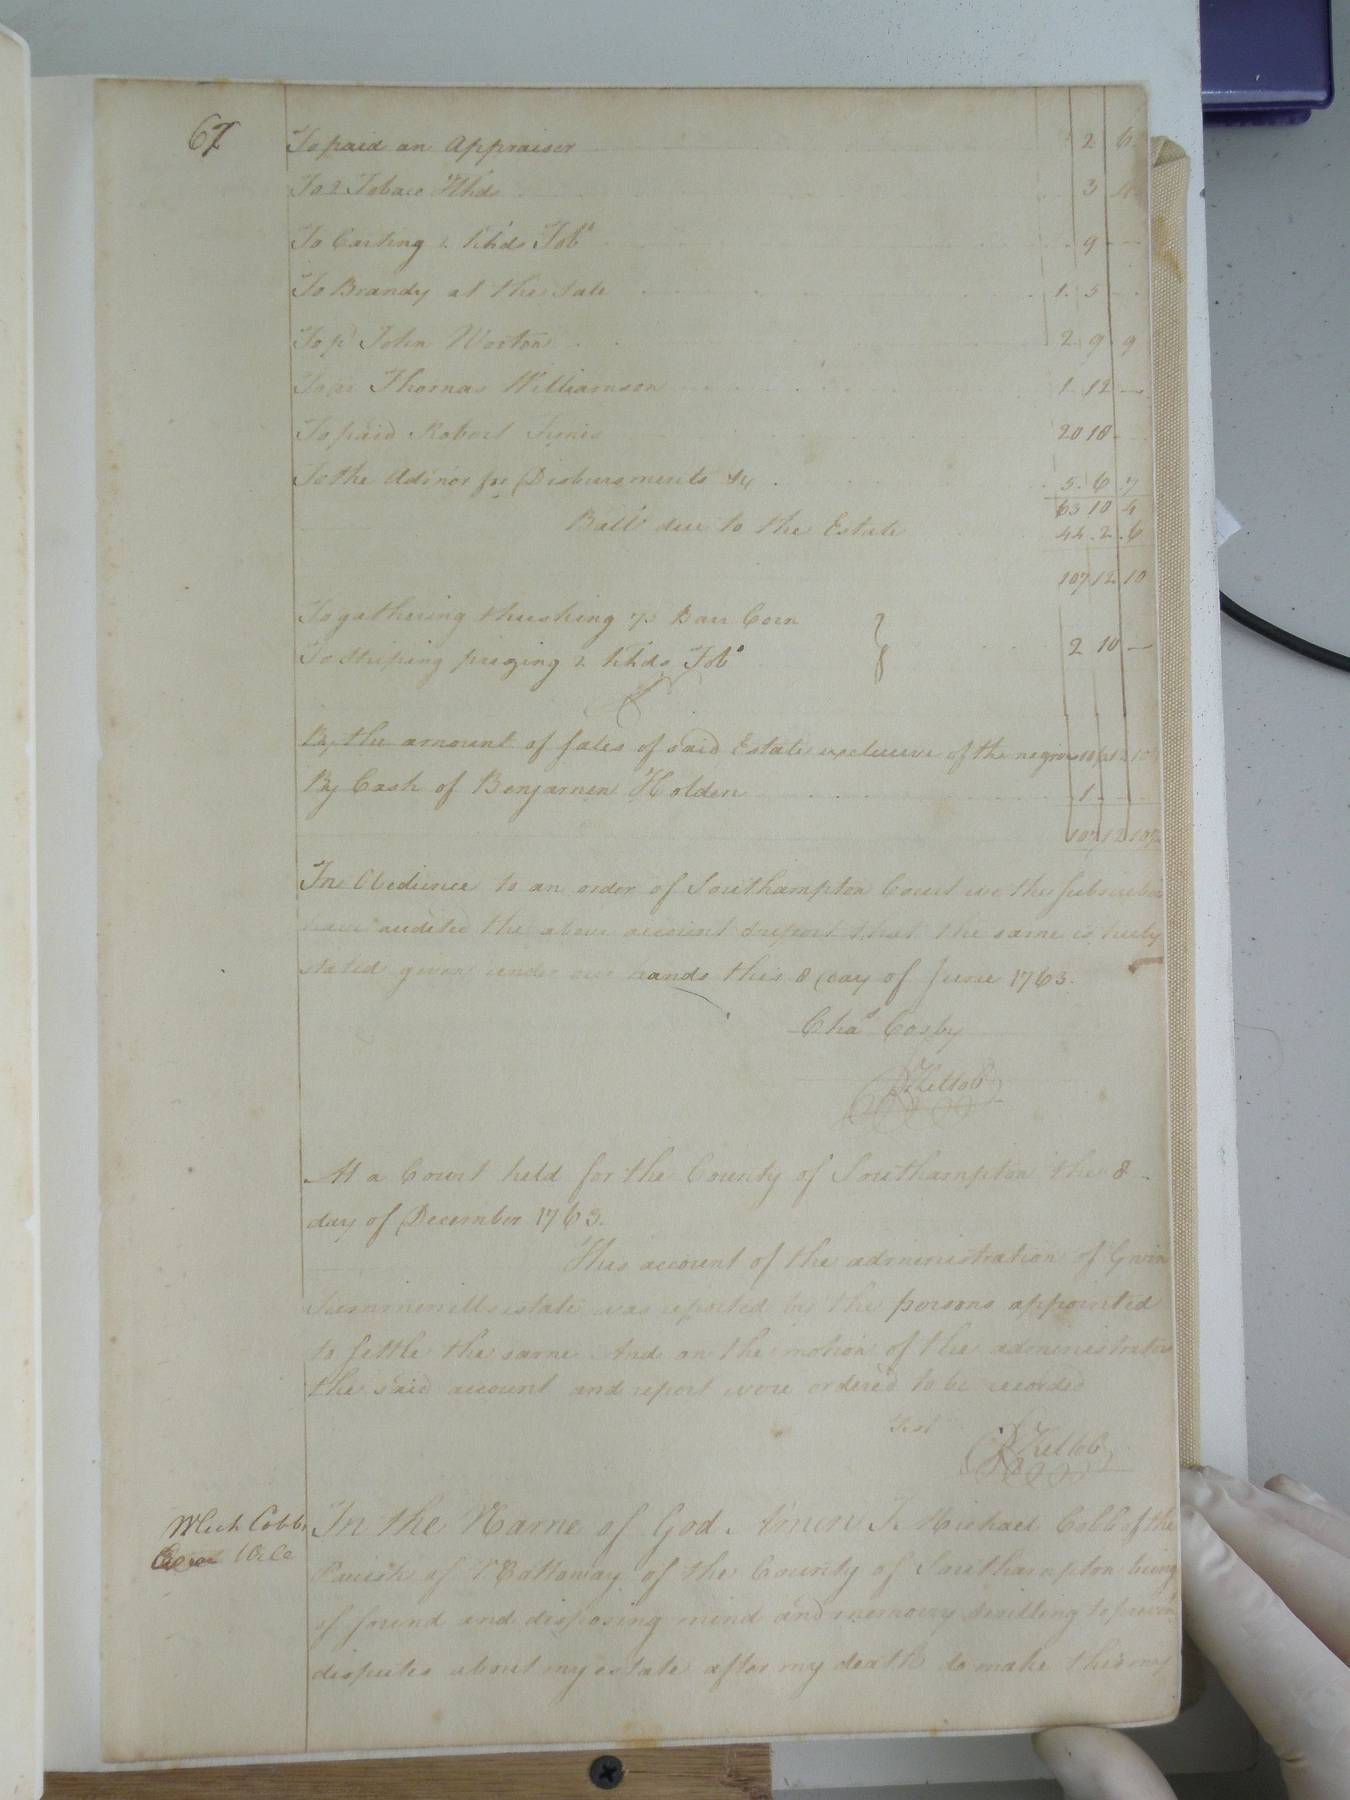 67
To paid an Appraiser 2 6
To 2 Tobaco Hhds 3
To Carting 2 hhds Tobo 9 —
To Brandy at the Sale 1. 5
To pd John Worton 2 9 9
To pd Thomas Williamson 1. 12 —
To paid Robert 20 18 -
To the Admor for Disbursments &c 5. 6. 7
63 10 4
Balla due to the Estate 44. 2. 6
107 12 10
To gathering thrushing 75 Barr Corn
To striping prizing 2 hhds Tobo 2 10 —
By the amount of sales of said Estate exclusive of the negroes 106 12 10
By Cash of Benjamen Holden 1.
107 12 10
In Obedience to an order of Southampton Court we the Subscribers
have audited the above account & report that the same is truly
stated given under our hands this 8 day of June 1763.
Chas Cosby
R Kello C
At a Court held for the County of Southampton the 8
day of December 1763.
This account of the administration of Gwin
Summerills estate was reported by the persons appointed
to settle the same And on the motion of the administrator
the said account and report were ordered to be recorded
Test
R Kello C
Mich Cobbs
Will
In the Name of God Amen I Michael Cobb of the
Parish of Nottoway of the County of Southampton being
of sound and disposing mind and memory & willing to prevent
disputes about my estate after my death do make this my